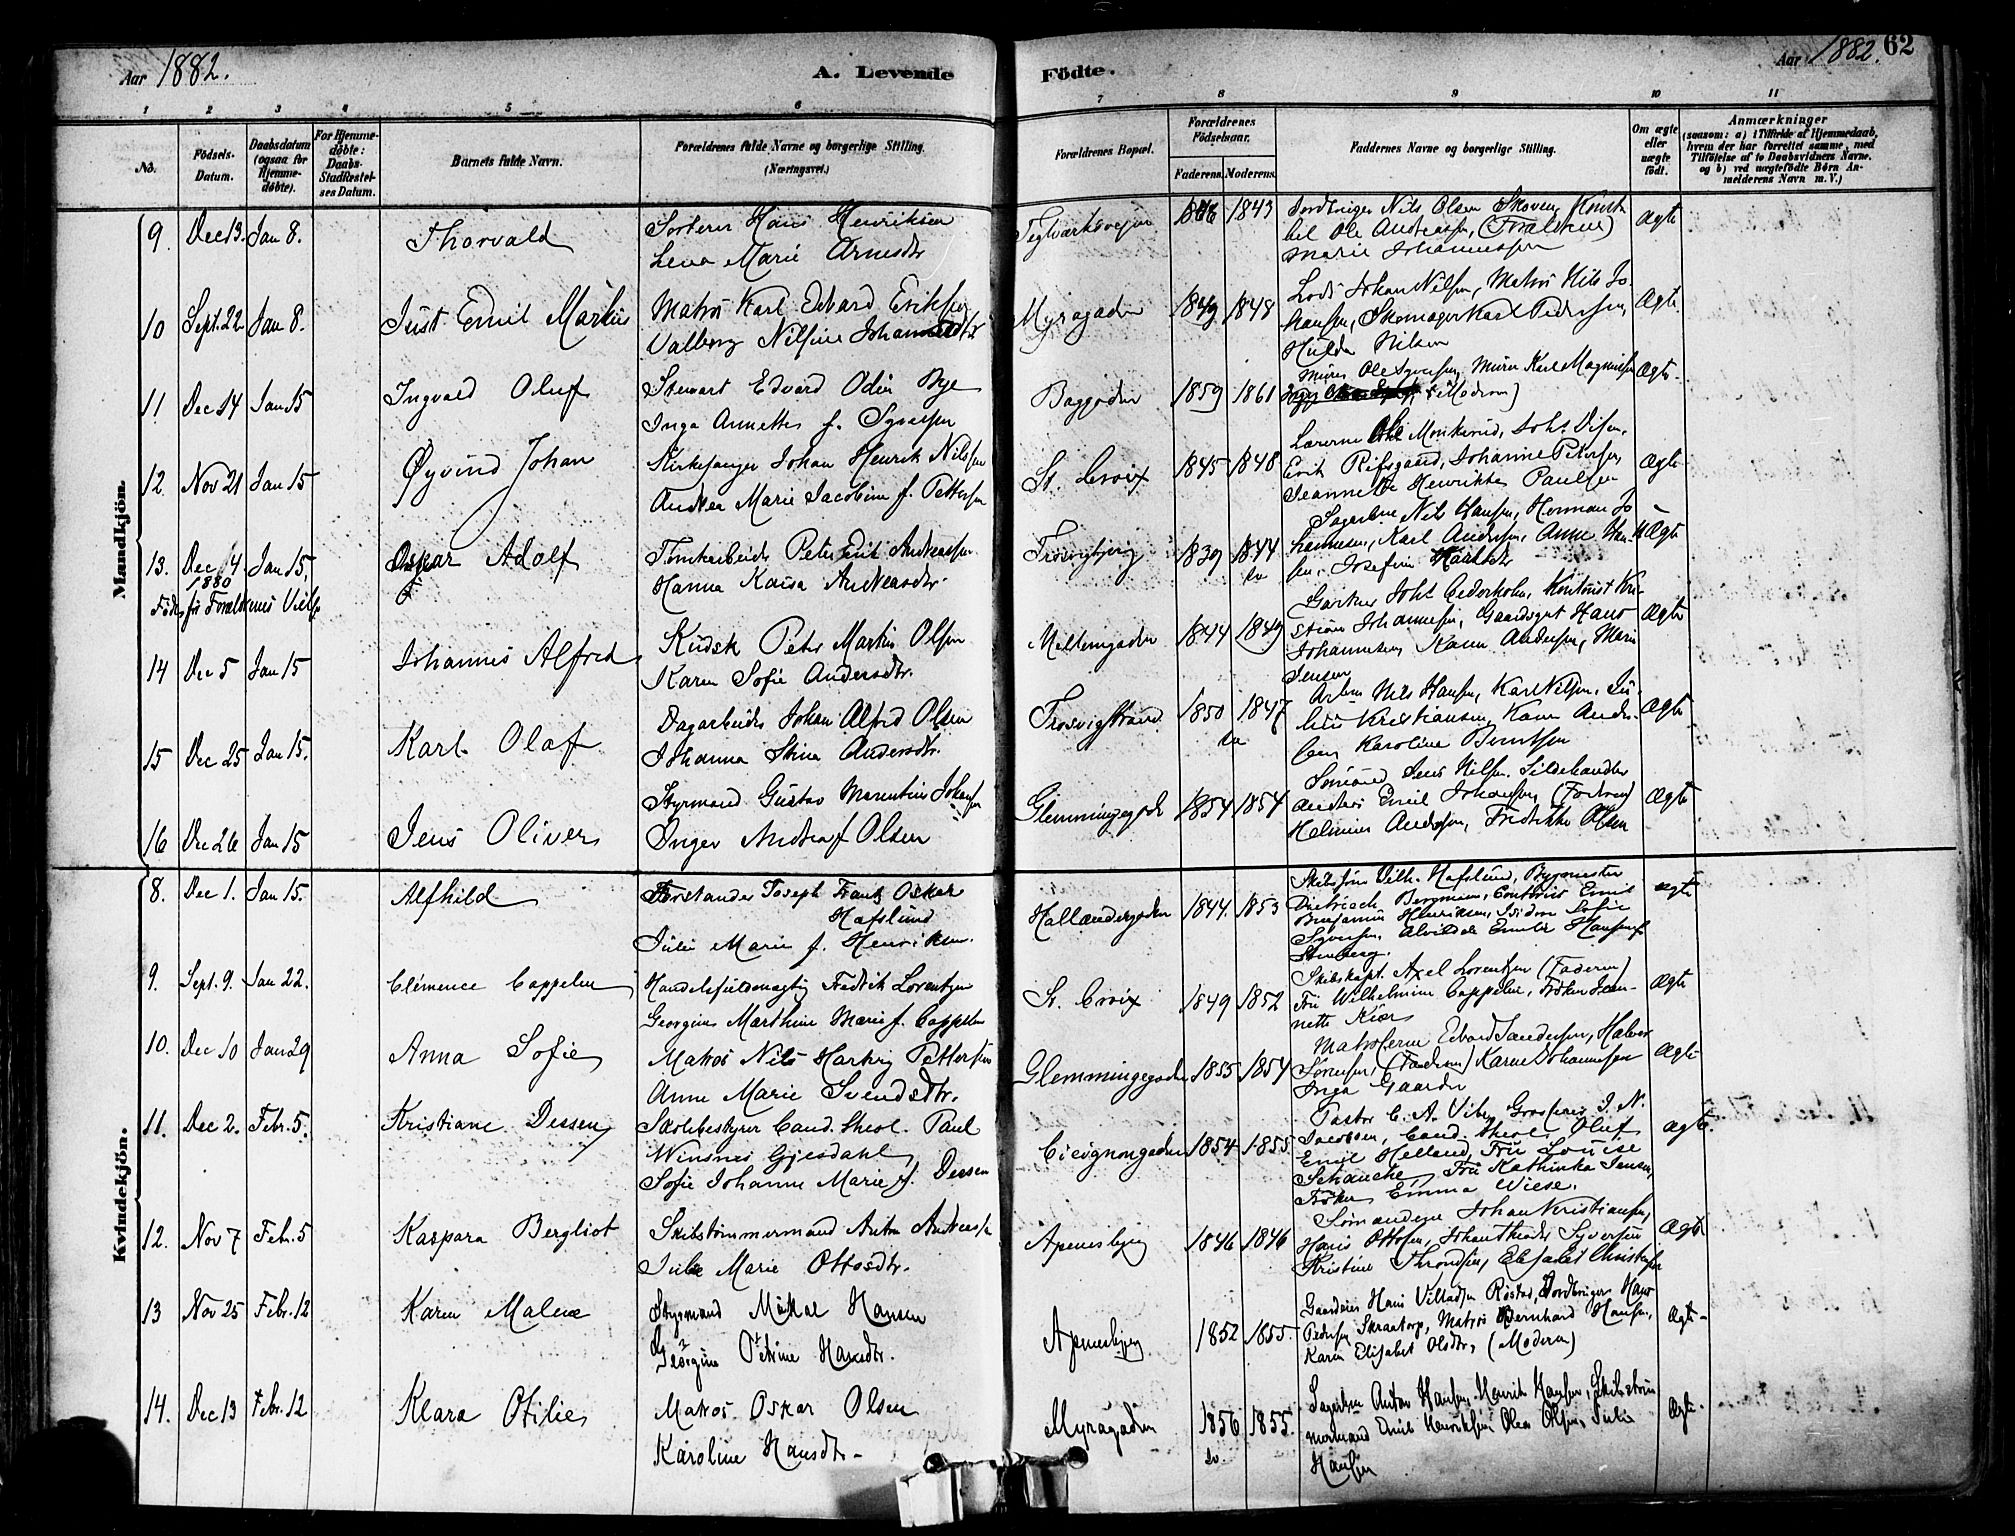 Aar 1882.
A. Levende
Födte.
Aar 1882. 62
1 2 3 4 5 6 7 8 9 10 11
No.
Födsels-Datum.
Daabsdatum (ogsaa for Hjemmedøbte).
For Hjemmedøbte: Daabs-Stadfæstelses Datum.
Barnets fulde Navn.
Forældrenes fulde Navne og borgerlige Stilling. (Næringsvei.)
Forældrenes Bopæl.
Forældrenes Födselsaar.
Faderens. Moderens.
Faddernes Navne og borgerlige Stilling.
Om ægte eller uægte født.
Anmærkninger
(saasom: a) i Tilfælde af Hjemmedaab, hvem der har forrettet samme, med Tilföielse af to Daabsvidners Navne, og b) ved uægtefödte Børn Anmelderens Navn m. V.)
Mandkjön.
9. Dec 13. Jan 8. Thorvald
Hans Henriksen
Lena Marie Arnesdtr
Teglverksveien 1843
Nils Olsen
Ole Andreassen, (Forældrene)
Marie Johannessen
Ægte
10 Sept. 22 Jan 8. Just Emil Markus
Matros Karl Edvard Eriksen
Valborg Nilsine Johannesdtr
Myragaden 1849 1848
Lods Johan Nilsen, Matros Nils Jo-
hansen, Skomager Karl Pedersen,
Hulda Nilsen
Ægte
11. Dec 14 Jan 15 Ingvald Oluf
Stewart Edvard Odin Bye
Inga Annette f. Syversen
Baggaden 1859 1861
Murer Ole Syversen, Murer Karl Magnussen
(Moderen)
Ægte
12. Nov 21 Jan 15 Øyvind Johan
Kirkesanger Johan Henrik Nilssen
Andrea Marie Jacobine f. Pettersen
St. Croix 1845 1848
Lærerne
Erik Rifsgaard, Johanne Petersen,
Jeannette Henrikke Paulsen
Ægte
13. Dec 4. Jan 15, Oskar Adolf
1880
Født før Forældrenes Vielse
Peter Erik Andreassen
Hanna Kaisa Andreasdtr.
Trosvigbjerg 1839 1844
Nils Hansen, Herman Jo-
hannesen, Karl Andersen, Anne Han-
sen, Josefine
Ægte
14 Dec 5 Jan 15 Johannes Alfred
Kudsk Peter Martin Olsen
Karen Sofie Andersdtr.
Mellemgaden 1844 1849
Gartner Johs Cederholm, Kontorist Kri-
stian Johannesen, Gaardsgut Hans
Johannesen, Karen Andersen, Marie
Jensen
Ægte
15 Dec 25 Jan 15. Karl Olaf
Dagarbeider Johan Alfred Olsen
Johanna Stina Andersdtr.
Trosvigstrand 1850 1847
Nils Hansen, Karl Nilsen, Ju-
lius Kristiansen, Karen Ander-
sen, Karoline Berntsen
Ægte
16 Dec 26 Jan 15 Jens Oliver
Styrmand Gustav Marentius Johansen
Inger Andrea f Olsen
Glemmingegaden 1854 1854
Sømand Jens Nilsen, Sildehandler
Anders Emil Johansen, (Faderen)
Helmine Andersen, Fredrikke Olsen
Ægte
Kvindekjön.
8. Dec 1. Jan 15. Alfhild
Forstander Joseph Frantz Oskar
Hafslund
Julie Marie f. Henriksen.
Hollændergaden 1844. 1853
Skibsfører Vilh. Hafslund, Bygmester
Dietrich Bergmann, Contorist Emil
Benjamin Henriksen, Isidora Sofie
Syversen, Alvilde Emilie Hansen f
Stenberg.
ægte
9. Sept. 9. Jan 22. Clémence Cappelen
Handelsfuldmægtig Fredrik Lorentzen
Georgine Marthine Marie f. Cappelen
St. Croix 1849 1852
Skibskapt. Axel Lorentzen (Faderen)
Fru Wilhelmine Cappelen, Frøken Jean-
nette Kiær
Ægte
10. Dec 10 Jan 29 Anna Sofie
Matros Nils Hartvig Pettersen
Anne Marie Svendsdtr.
Glemmingegaden 1855 1854
Matroserne Edvard Sandersen, Halvor
Sørensen, (Faderen) Karen Johannesen
Inga Gaarder
Ægte
11. Dec 2. Febr. 5. Kristiane Dessen
Skolebestyrer Cand. theol. Paul
Winsnes Gjesdahl
Sofie Johanne Marie f. Dessen
Cicignongaden 1854 1855.
Pastor C. A. Vibe, Grosserer J. N.
Jacobsen, Cand. theol. Oluf
Emil Helland, Fru Louise
Schancke, Fru Kathinka Jensen,
Frøken Emma Wiese.
ægte.
12. Nov 7 Febr. 5 Kaspara Bergliot
Skibstømmermand Anton Andreasen
Julie Marie Ottosdtr.
Apenesbyen 1846 1846
Sømændene Johan Kristiansen,
Hans Ottosen, Johan Theodor Syversen
Kristine Throndsen, Elisabet Christensen
Ægte
13 Nov 25 Febr. 12 Karen Malene
Styrmand Mikal Hansen
Georgine Petrine Hansdtr.
Apenesbyen 1852 1855.
Gaardeier Hans Villadsen Røstad, Jordbruger Hans
Pedersen Skraatorp, Matros Bernhard Hansen,
Karen Elisabet Olsdtr, (Moderen)
Ægte
14. Dec 13 Febr. 12 Klara Otilie
Matros Oskar Olsen
Karoline Hansdtr
Myragaden 1856 1855.
Anton Hansen, Henrik Hansen, Skibstøm-
mermand Emil Henriksen, Olea Olsen, Julie
Hansen
Ægte